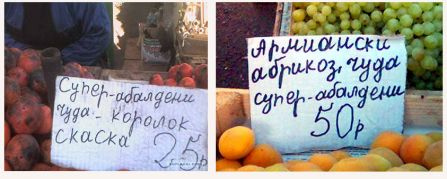 Супер-абалдени
чуда - королок
скаска
25р
Армиански
абрикоз, чуда
супер-абалдени
50р